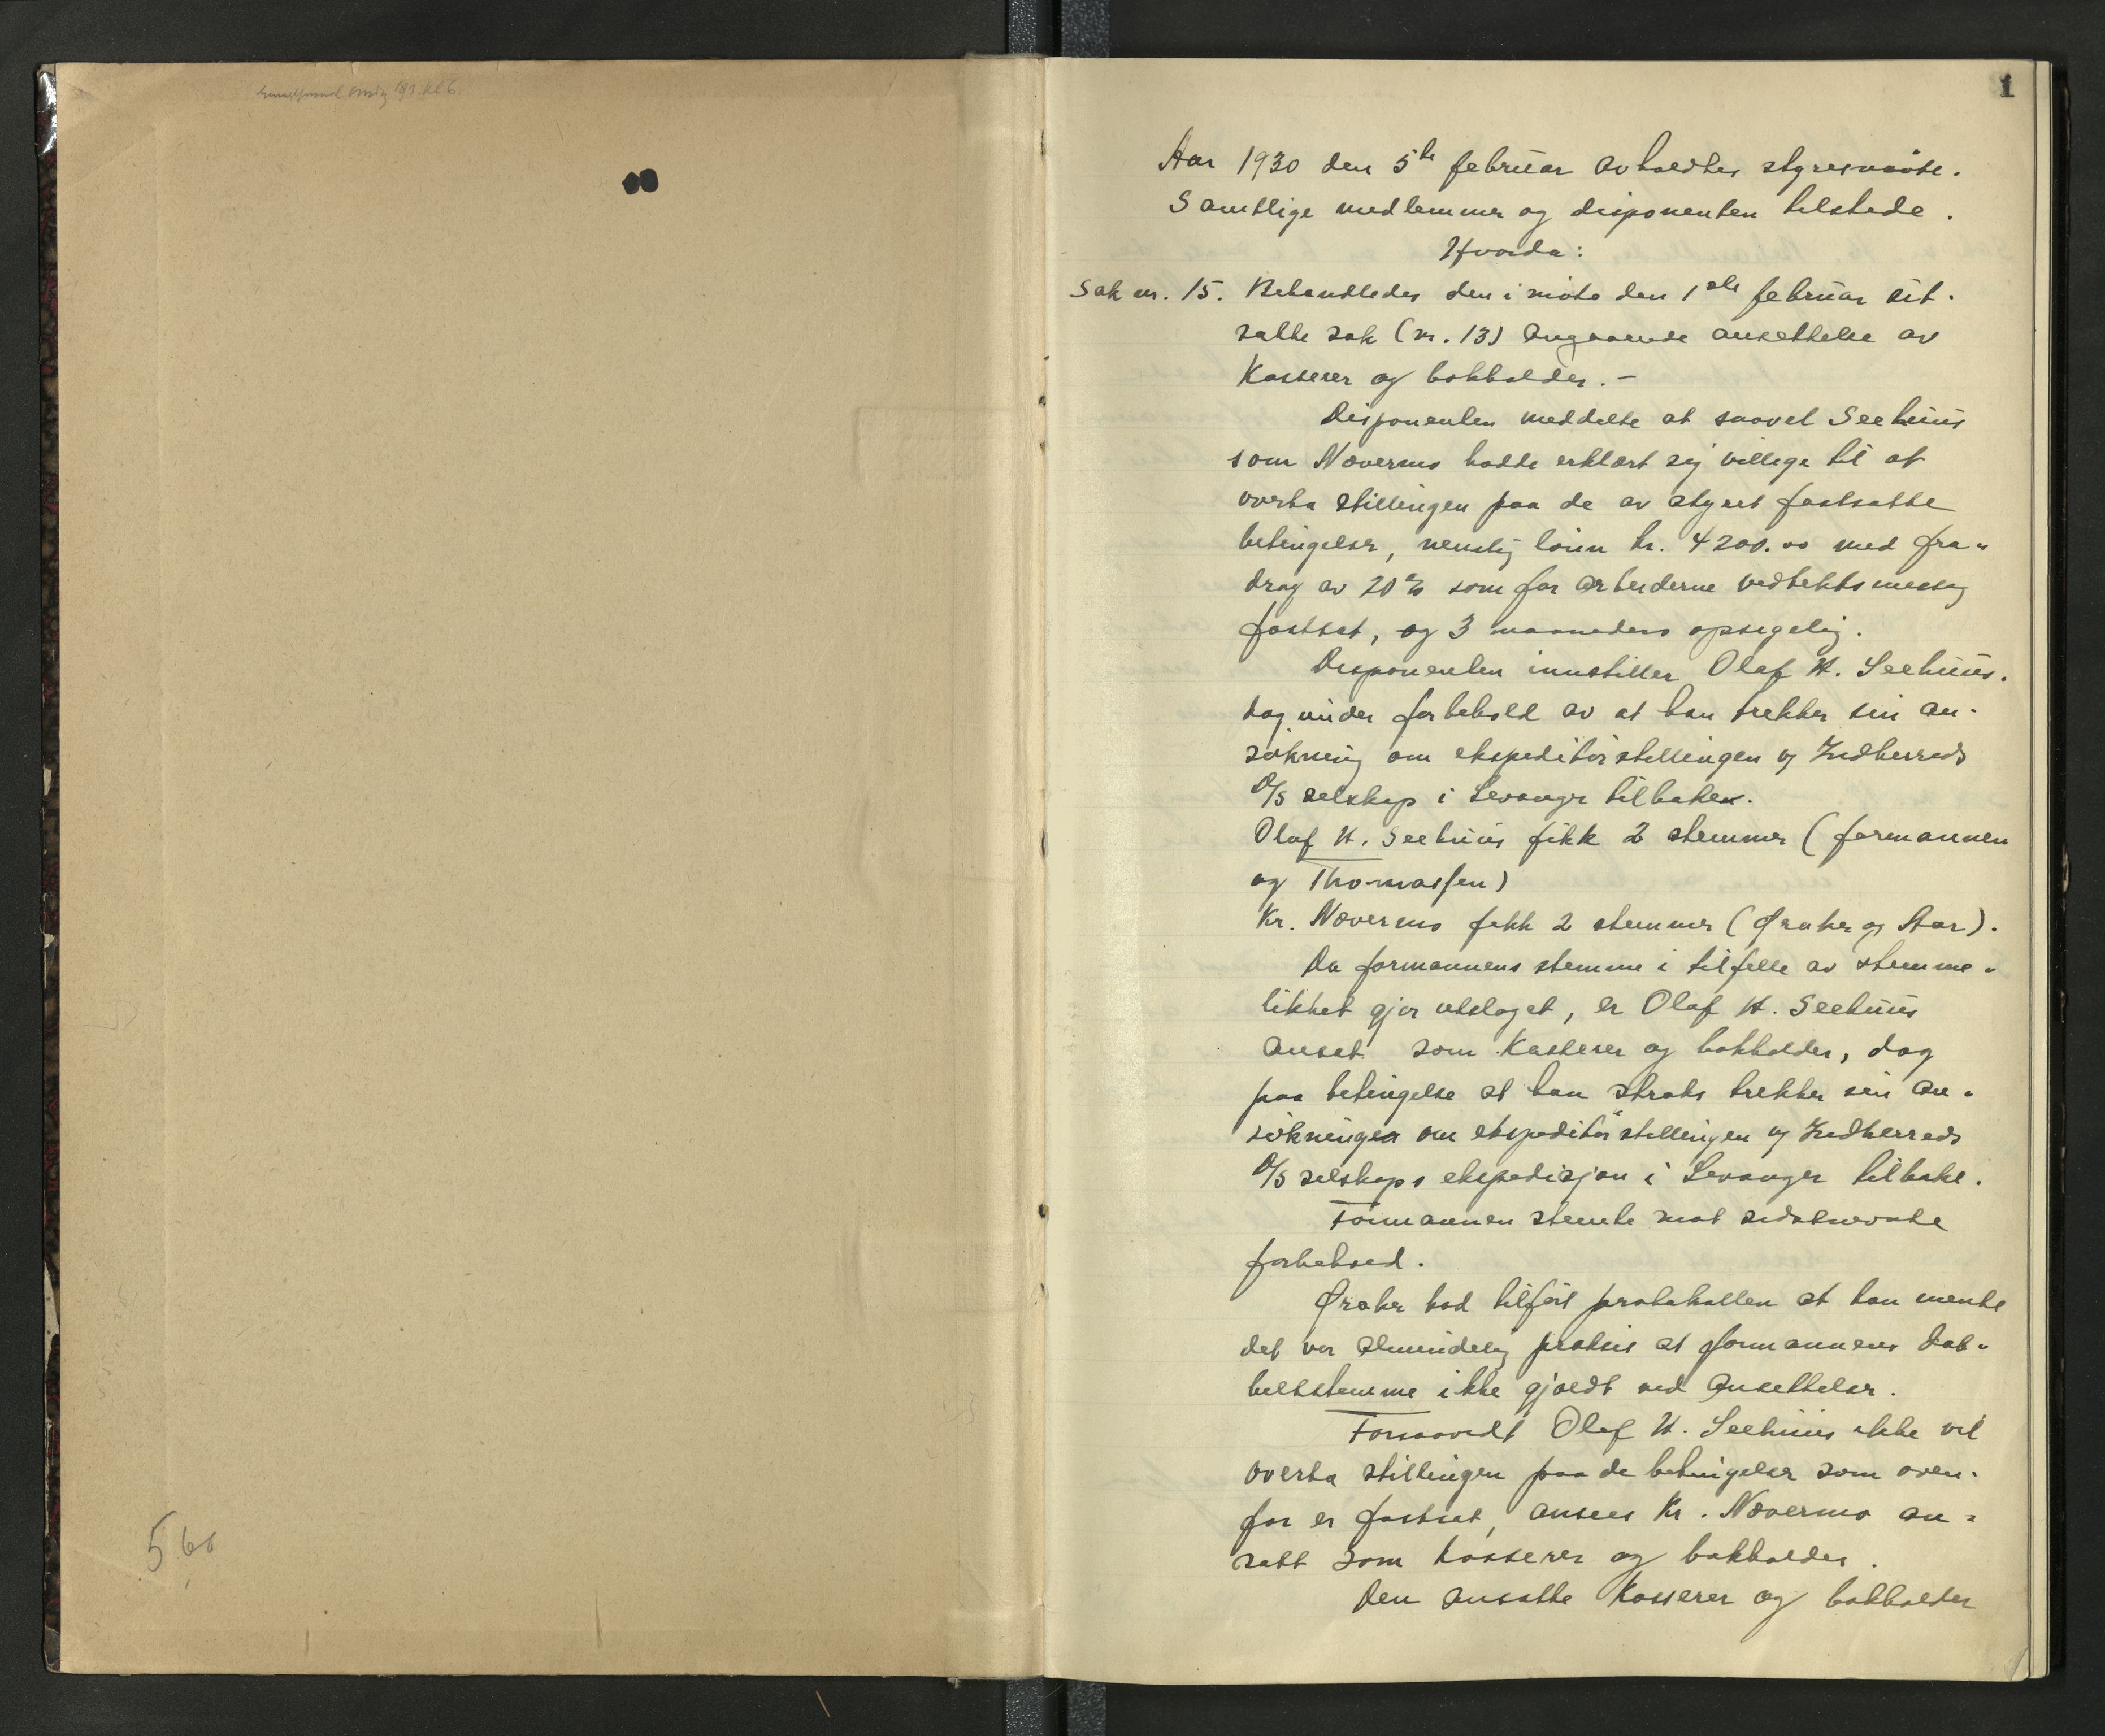 1
Aar 1930 den 5te februar avholdtes styresmöte.
Samtlige medlemmer og disponenten tilstede.
Hvorda:
Sak nr. 15. Behandledes den i möte den 1ste februar ut-
satte sak (nr. 13) angaaende ansettelse av
Kasserer og bokholder. -
Disponenten meddelte at saavel Seehuus
som Nævermo hadde erklært sig villige til at
overta stillingen paa de av styret fastsatte
betingelser, nemlig lönn kr. 4200.00 med fra-
drag av 20% som for arbeiderne vedtektsmessig
fastsat, og 3 maaneders opsigelig.
Disponenten innstiller Olaf H. Seehuus.
dog under forbehold av at han trekker sin an-
sökning om ekspeditörstillingen v Indherreds
D/S selskap i Levanger tilbake.
Olaf H. Seehuus fikk 2 stemmer (formannen
og Thomassen)
Kr. Nævermo fikk 2 stemmer (Øraker og Aar).
Da formannens stemme i tilfelle av stemme-
likhet gjør utslaget, er Olaf H. Seehuus
ansat som Kasserer og bokholder, dog
paa betingelse at han straks trekker sin an-
sökningen om ekspeditör stillingen v Indherreds
D/S selskaps ekspedisjon i Levanger tilbake.
Formannen stemte mot sidstnevnte
forbehold.
Øraker bad tilført protokollen at han mente
det var almindelig praksis at formannens dob-
beltstemme ikke gjaldt ved ansettelser.
Forsaavidt Olaf H. Seehuus ikke vil
overta stillingen paa de betingelser som oven-
for er fastsat, ansees Kr. Nævermo an-
satt som kasserer og bokholder.
Den ansatte Kasserer og bokholder
560